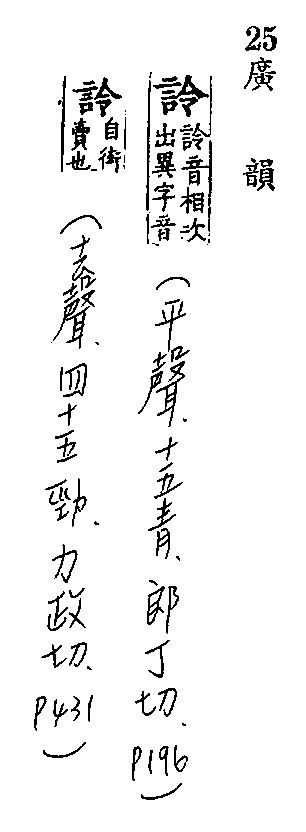 25廣韻
詅 詅音相次出異字音 (平聲、十五青、郎丁切、P196)
詅 自衒賣也 (去聲、四十五勁、力政切、P431)